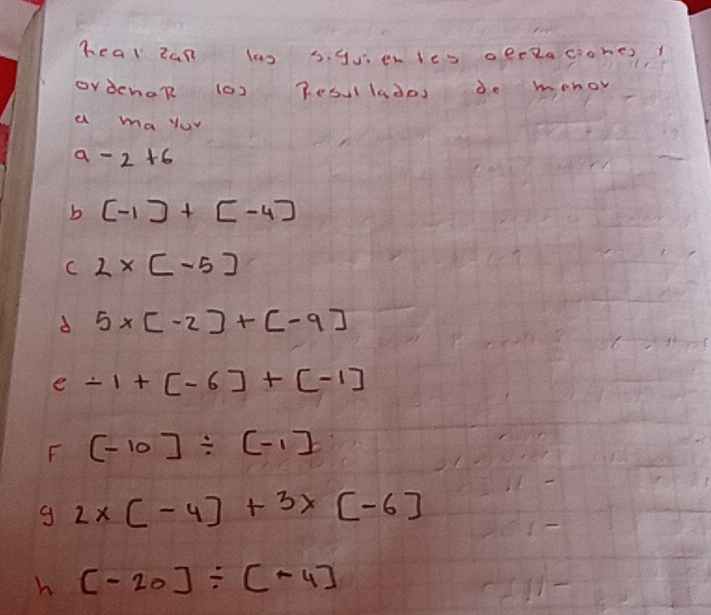 Realizar las siguientes oerzaciones y
ordenar los Resultados de menor
a mayor
a -2 +6
b [-1] + [-4]
c 2 × [-5]
d 5 × [-2] + [-9]
e -1 + [-6] + [-1]
F [-10] ÷ [-1]
g 2 × [-4] + 3 × [-6]
h [-20] ÷ [-4]